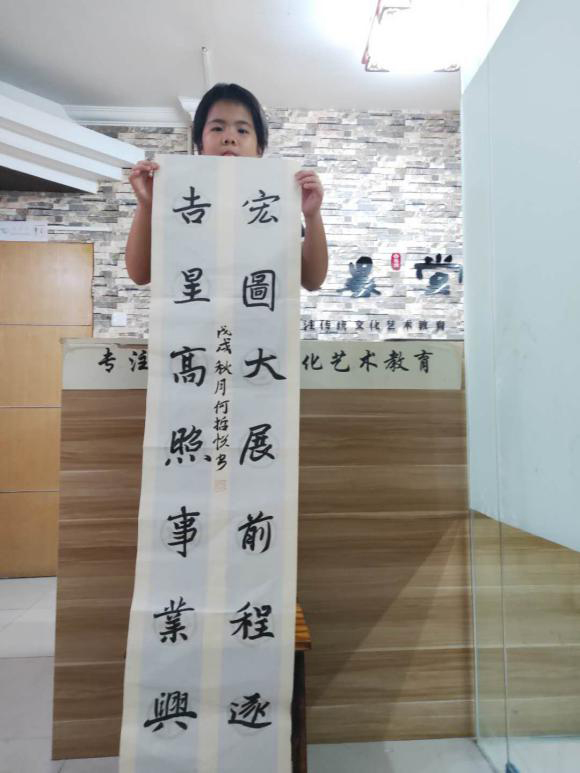 宏圖大展前程逐
吉星高照事業興
戊戌秋月何哲悦书
堂
注传统文化艺术教育
专注 化艺术教育